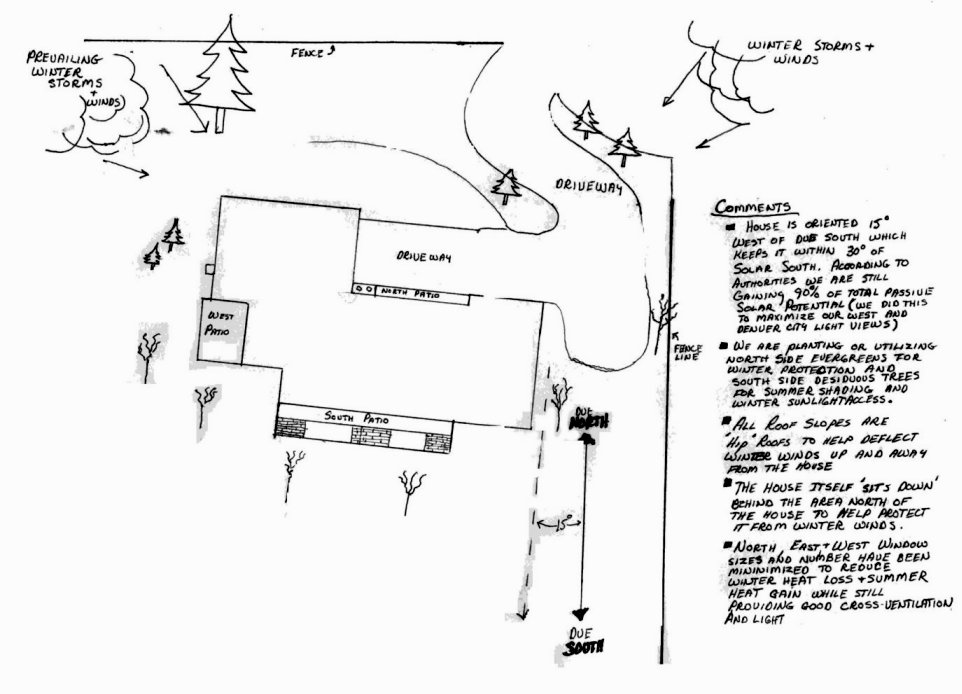 FENCE
PREVAILING
WINTER
STORMS
+
WINDS
WINTER STORMS +
WINDS
DRIVEWAY
DRIVEWAY
NORTH PATIO
WEST
PATIO
SOUTH PATIO
FENCE
LINE
DUE
NORTH
15°
DUE
SOUTH
COMMENTS
■ HOUSE IS ORIENTED 15°
WEST OF DUE SOUTH WHICH
KEEPS IT WITHIN 30° OF
SOLAR SOUTH. ACCORDING TO
AUTHORITIES WE ARE STILL
GAINING 90% OF TOTAL PASSIVE
SOLAR POTENTIAL (WE DID THIS
TO MAXIMIZE OUR WEST AND
DENVER CITY LIGHT VIEWS)
■ WE ARE PLANTING OR UTILIZING
NORTH SIDE EVERGREENS FOR
WINTER PROTECTION AND
SOUTH SIDE DESIDUOUS TREES
FOR SUMMER SHADING AND
WINTER SUNLIGHT ACCESS.
■ ALL ROOF SLOPES ARE
"HIP" ROOFS TO HELP DEFLECT
WINTER WINDS UP AND AWAY
FROM THE HOUSE
■ THE HOUSE ITSELF "SITS DOWN"
BEHIND THE AREA NORTH OF
THE HOUSE TO HELP PROTECT
IT FROM WINTER WINDS.
■ NORTH, EAST, + WEST WINDOW
SIZES AND NUMBER HAVE BEEN
MINIMIZED TO REDUCE
WINTER HEAT LOSS + SUMMER
HEAT GAIN WHILE STILL
PROVIDING GOOD CROSS-VENTILATION
AND LIGHT